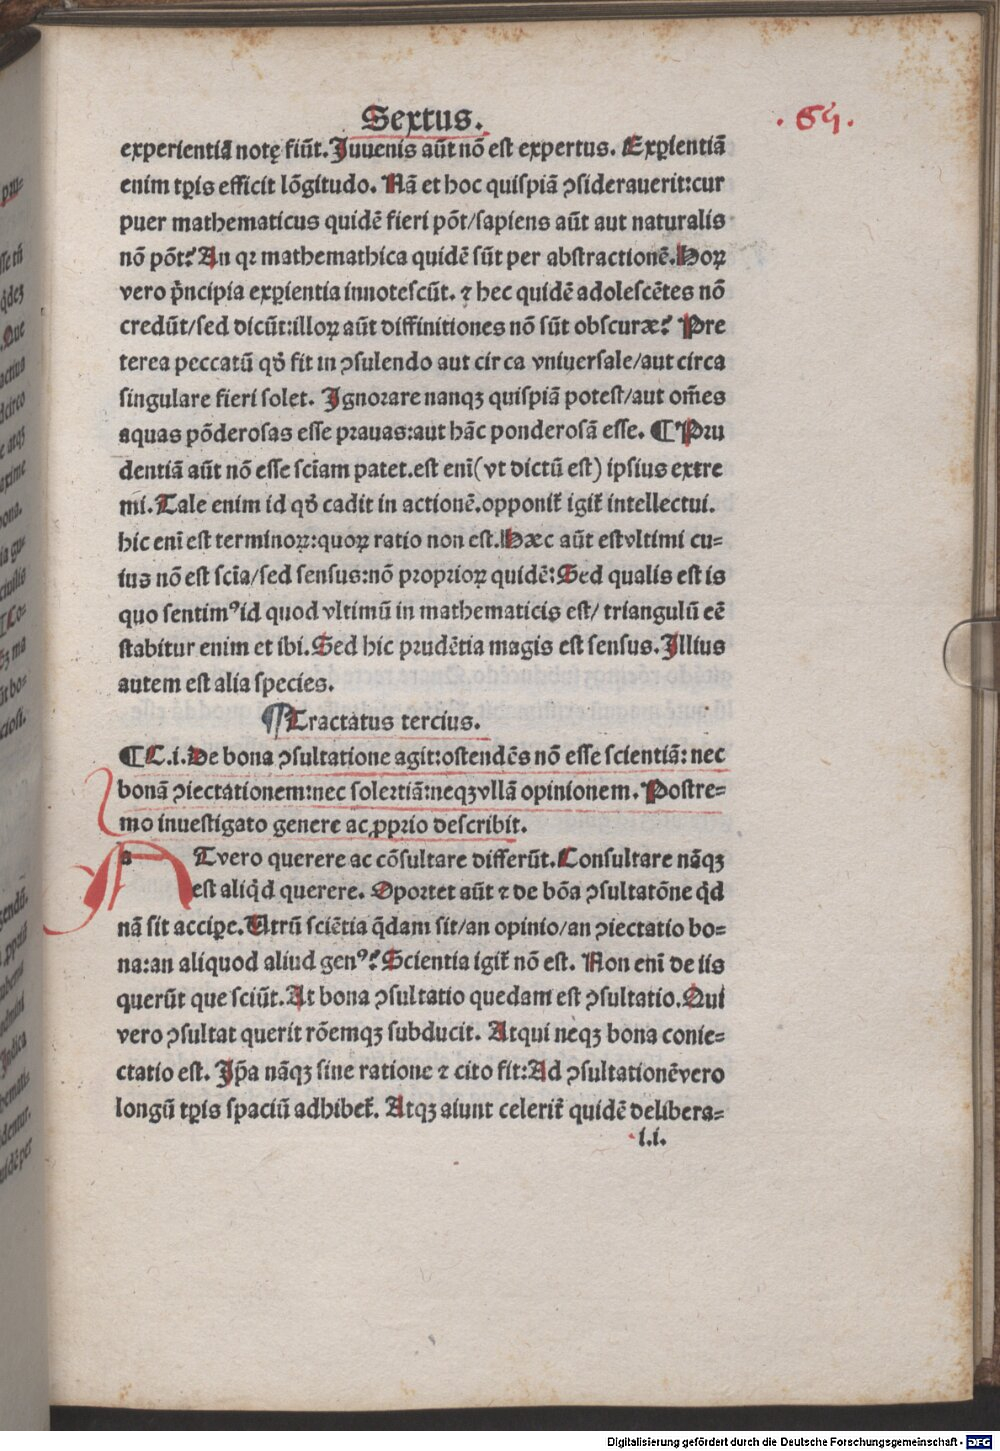 Sextus.
. 65 .
experientiā notę fiūt. Juuenis aūt nō est expertus. Exꝑientiā
enim tꝑis efficit lōgitudo. Nā et hoc quispiā ꝯsiderauerit: cur
puer mathematicus quidē fieri pōt/sapiens aūt aut naturalis
nō pōt? An qꝛ mathemathica quidē sūt per abstractionē. Hoꝝ
vero p̄ncipia exꝑientia innotescūt. ⁊ hec quidē adolescētes nō
credūt/sed dicūt: illoꝝ aūt diffinitiones nō sūt obscuræ? Pre
terea peccatū qđ fit in ꝯsulendo aut cir ca vniuersale/aut circa
singulare fieri solet. Ignorare nanqꝫ quispiā potest/aut om̄es
aquas pōderosas esse prauas: aut hāc ponderosā esse. ¶ Pru
dentiā aūt nō esse sciam̄ patet. est eni̅ (vt dictū est) ipsius extre
mi. Tale enim id qđ cadit in actionē. opponit̃ igit̃ intellectui.
hic eni̅ est terminoꝝ: quoꝝ ratio non est. Hæc aūt est vltimi cu-
ius nō est scia̅/sed sensus: nō proprioꝝ quidē: Sed qualis est is
quo sentimꝰ id quod vltimū in mathematicis est/ triangulū eē
stabitur enim et ibi. Sed hic prudētia magis est sensus. Illius
autem est alia species.
¶ Tractatus tercius.
¶ C.i. De bona ꝯsultatione agit: ostendēs nō esse scientiā: nec
bonā ꝯiectationem: nec solertiā: neqꝫ vllā opinionem. Postre-
mo inuestigato genere ac ꝓprio describit.
a Tvero querere ac cōsultare differūt. Consultare nāqꝫ
est aliq̄d querere. Oportet aūt ⁊ de bōa ꝯsultatōne q̄d
nā sit accipe. Utrū sciētia q̄dam sit/an opinio/an ꝯiectatio bo-
na: an aliquod aliud genꝰ? Scientia igit̃ nō est. Non eni̅ de iis
querūt que sciūt. At bona ꝯsultatio quedam est ꝯsultatio. Qui
vero ꝯsultat querit rōemqꝫ subducit. Atqui neqꝫ bona conie-
ctatio est. Ip̄a nāqꝫ sine ratione ⁊ cito fit: Ad ꝯsultationē vero
longū tꝑis spaciū adhibet̃. Atqꝫ aiunt celerit̃ quidē delibera-
i.i.
Digitalisierung gefördert durch die Deutsche Forschungsgemeinschaft - DFG